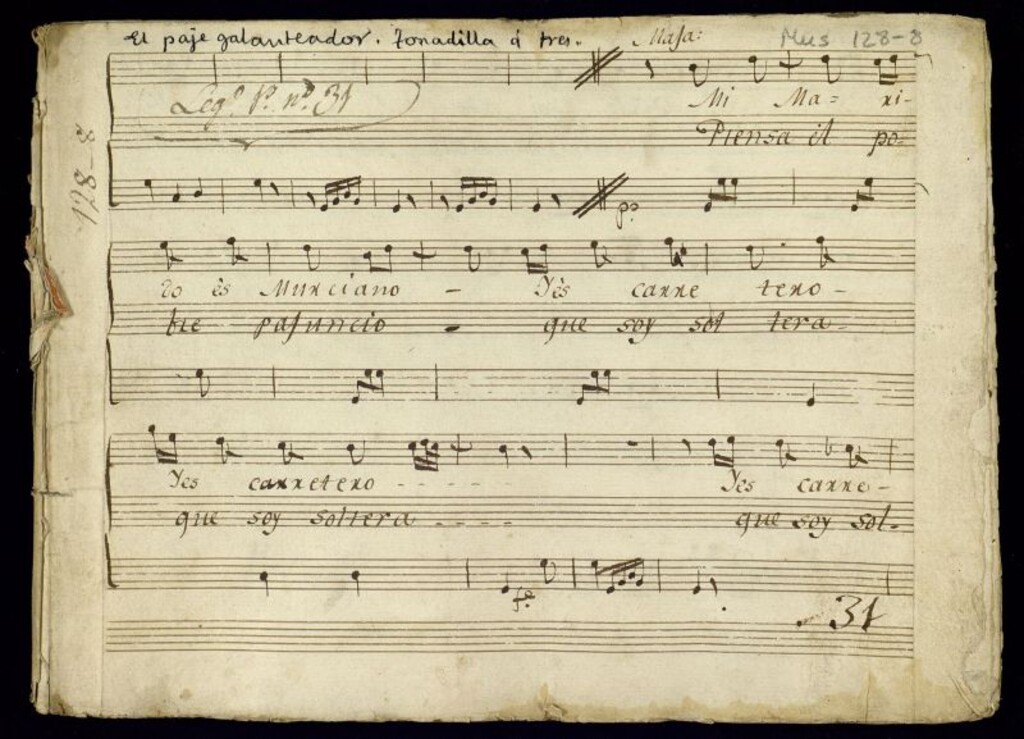 El paje galanteador. Tonadilla á tres. Maja: Mus 128-8
Leg.º 1.º nº. 31
128-8
Mi Ma= ri-
Piensa él po-
p.º
do ès Murciano - Yès carre tero -
bre pajuncio - que soy sol tera -
Yes carretero - - - - - Yes carre -
que soy soltera - - - - que soy sol-
f.º
31